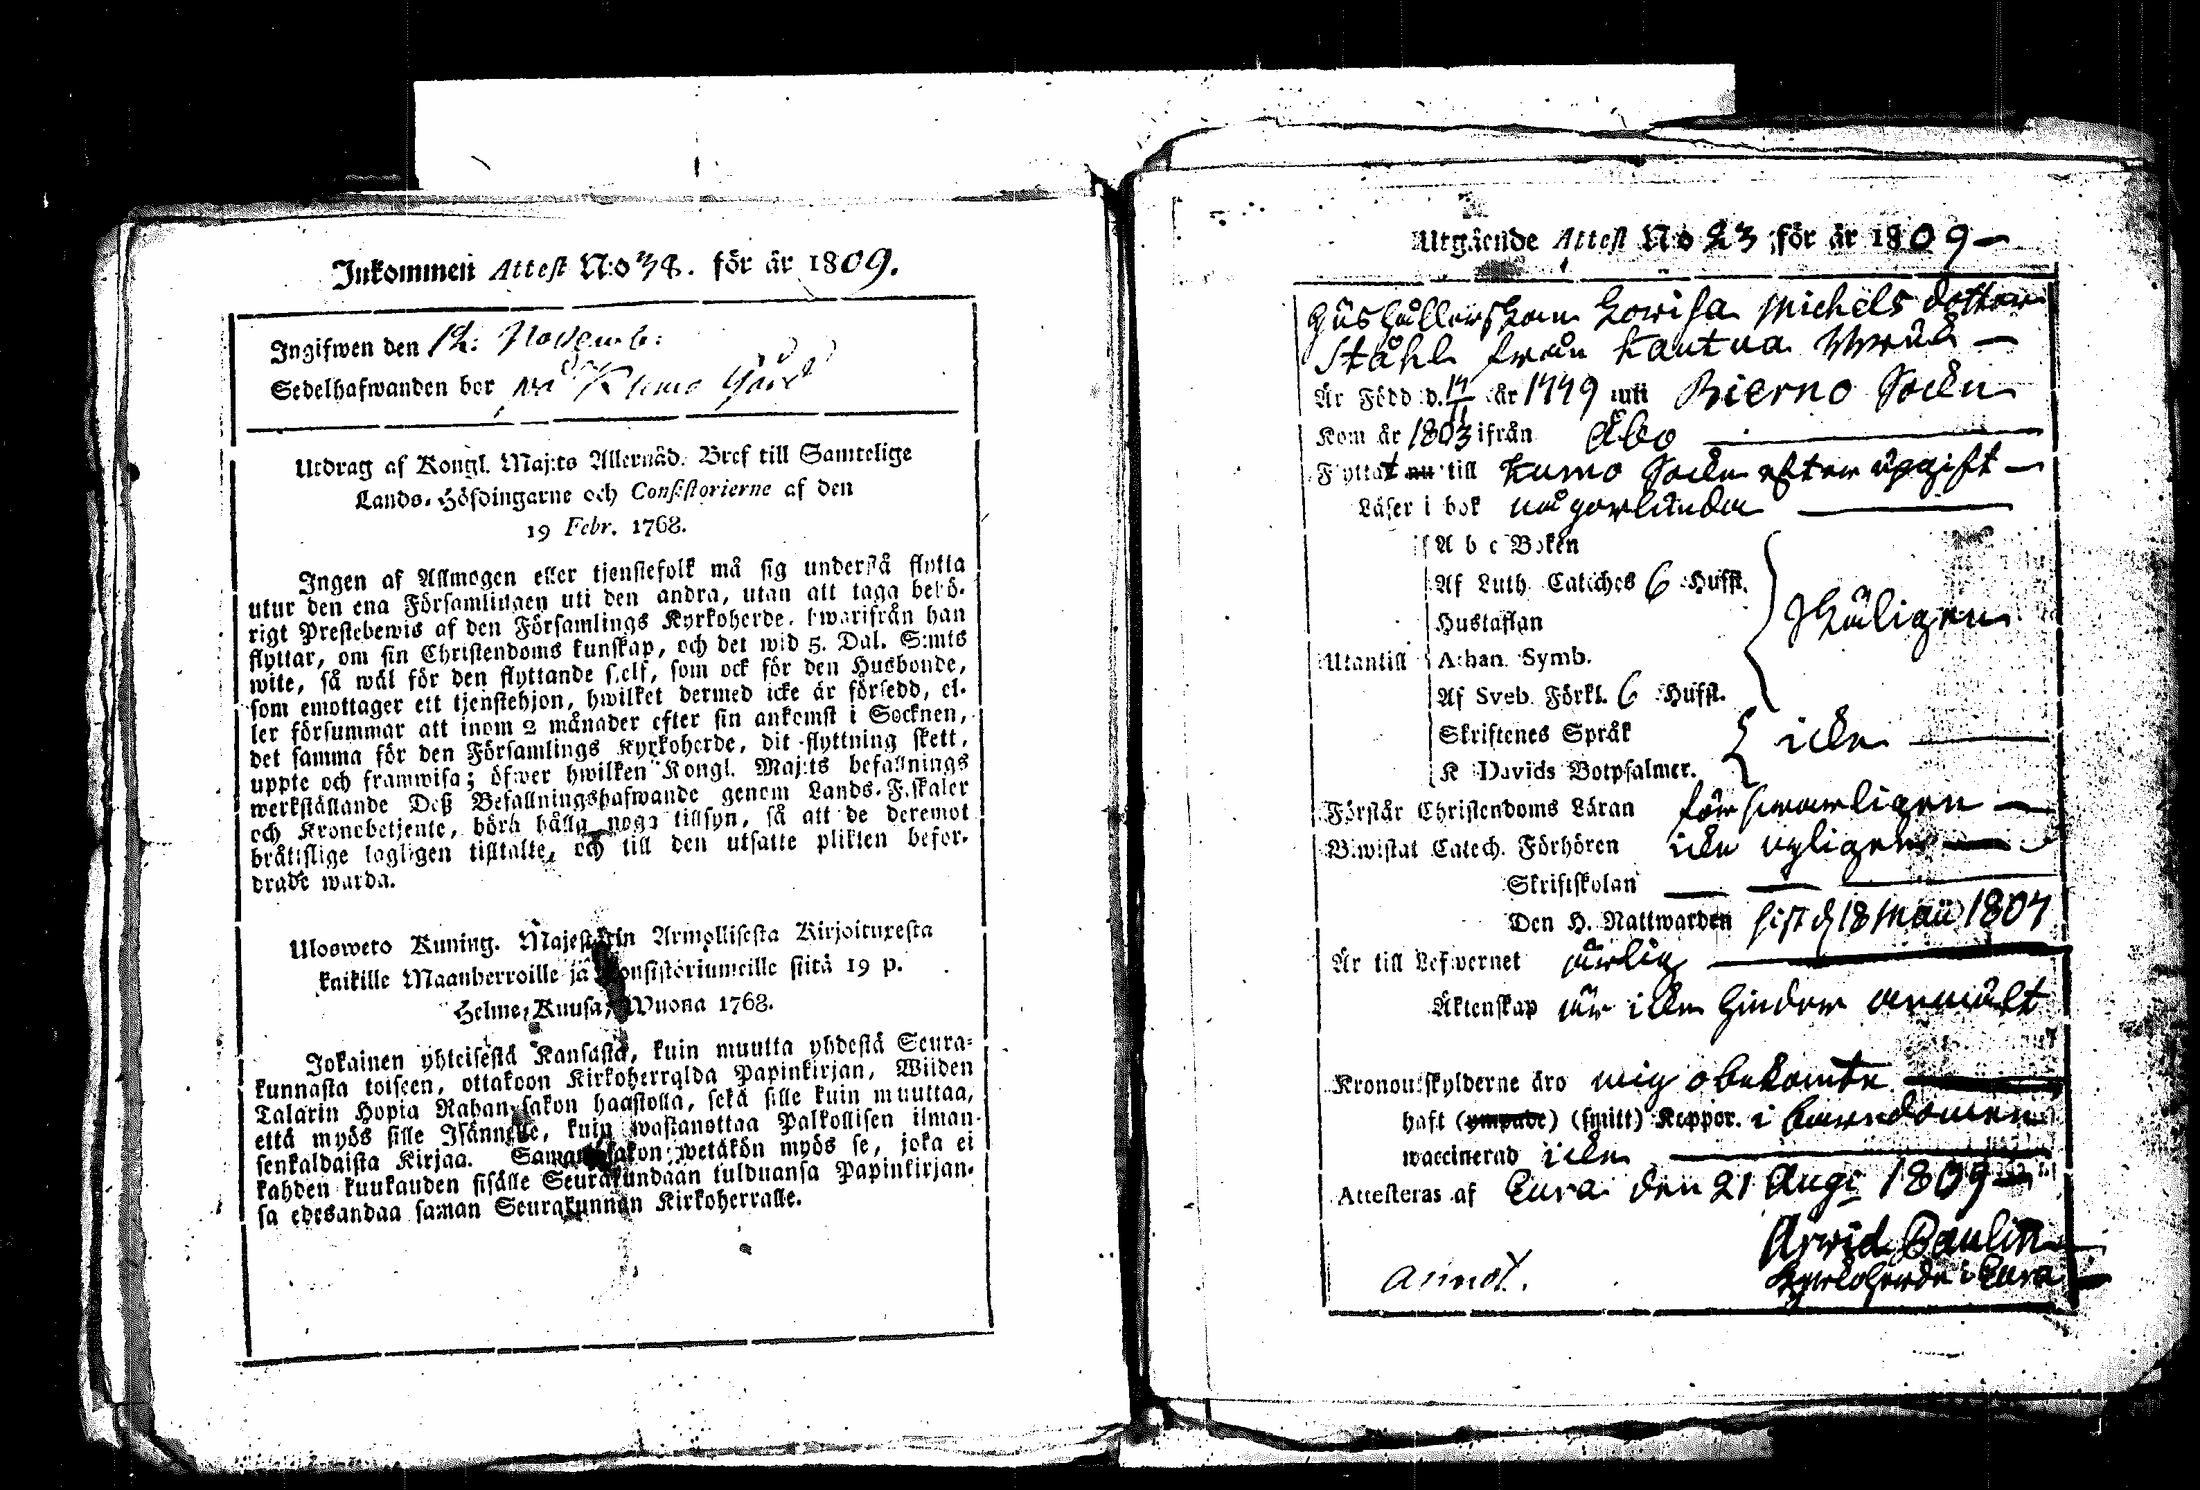 Inkommen Attest N:o 38. för är 1809.
Ingifwen den 12. Novemb:
Sedelhafwanden bor på Kumo Gård
Utdrag af Kongl. Maj:ts Allernåd. Bref till Samtelige
Lands-Höfdingarne och Consistorierne af den
19 Febr. 1768.
Ingen af Allmogen eller tjenstefolk må sig understå flytta
utur den ena Församlingen uti den andra, utan att taga behö-
rigt Prestebewis af den Församlings Kyrkoherde, hwarifrån han
flyttar, om sin Christendoms kunskap, och det wid 5. Dal. S:mts
wite, så wäl för den flyttande sielf, som ock för den Husbonde,
som emottager ett tjenstehjon, hwilket dermed icke är försedd, el-
ler försummar att inom 2 månader efter sin ankomst i Socknen,
det samma för den Församlings Kyrkoherde, dit flyttning skett,
uppte och framwisa; öfwer hwilken Kongl. Maj:ts befallnings
werkställande Deß Befallningshafwande genom Lands-Fiskaler
och Kronobetjente, böra hålla noga tillsyn, så att de deremot
bråtislige lagligen tilltalte, och till den utsatte plikten befor-
drade warda.
Ulosweto Kuning. Majestätin Armollisesta Kirjoituxesta
kaikille Maanherroille ja Consistoriumeille siitä 19 p.
Helme-Kuusa, Wuona 1768.
Jokainen yhteisestä Kansasta, kuin muutta yhdestä Seura-
kunnasta toiseen, ottakoon Kirkoherralda Papinkirjan, Wiiden
Talarin Hopia Rahan sakon haastolla, sekä sille kuin muuttaa,
että myös sille Isännelle, kuin wastanottaa Palkollisen ilman
senkaldaista Kirjaa. Saman sakon wetäkön myös se, joka ei
kahden kuukauden sisälle Seurakundaan tulduansa Papinkirjan-
sa edesandaa saman Seurakunnan Kirkoherralle.
Utgäende Attest No 23 för är 1809
Hushållerskan Lowisa Michels dotter
Ståhl från Kautua Bruk
Är Född d. 17/11 år 1779 uti Bierno Sockn
Kom år 1803 ifrån Åbo
Flyttat nu till Kumo Sockn efter upgift
Läser i bok någorlunda
A b c Boken
Af Luth. Cateches 6 Hufst.
Hustaflan
skäligen
Utantill Athan. Symb.
Af Sveb. Förkl. 6 Hufst.
Skriftenes Språk
icke
K Davids Botpsalmer.
Förstår Christendoms Läran försvarligen
Biwistat Catech. Förhören icke
Skriftskolan
Den H. Nattwarden sist d 18 Maii 1807
Är till Lefwernet ärlig
Äktenskap är icke hinder anmält
Kronoutskylderne äro mig obekante
haft (ympade) (smitt) Koppor. i barndomen
waccinerad icke
Attesteras af Eura den 21 Aug: 1809
Arvid Paulin
Kyrkoherde i Eura
annot.